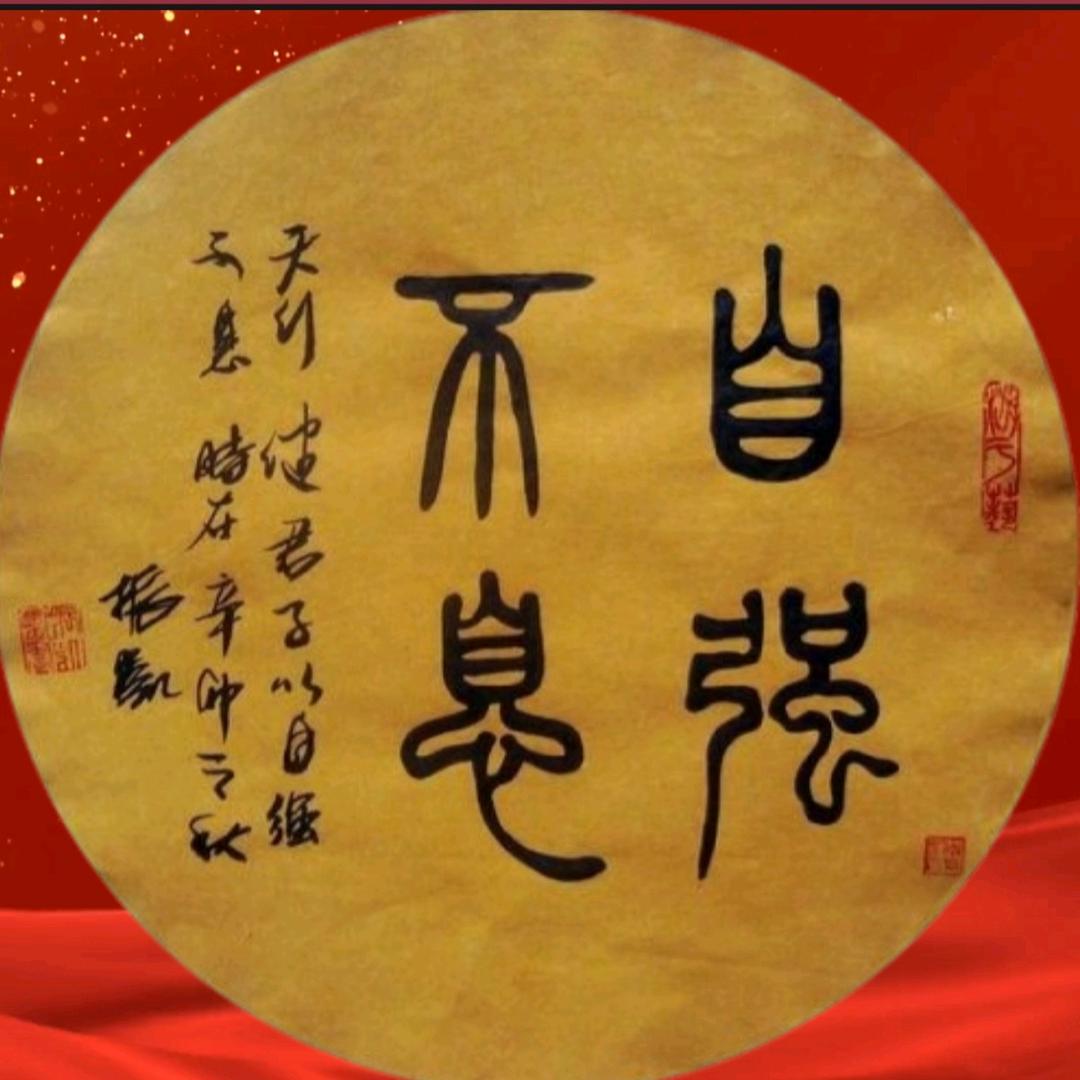 游于藝
自强
不息
天行健君子以自强
不息時在辛卯之秋
振凱